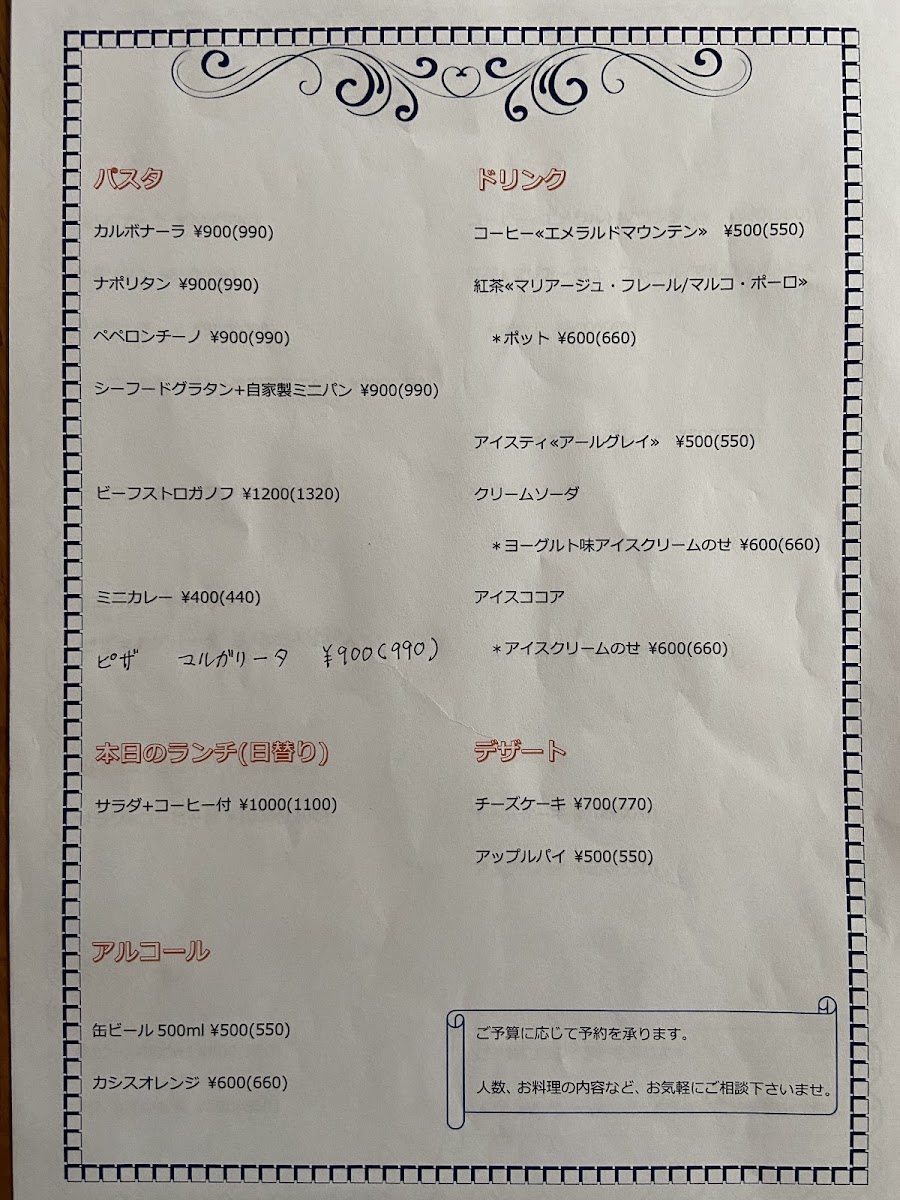 パスタ
カルボナーラ ¥900(990)
ナポリタン ¥900(990)
ペペロンチーノ ¥900(990)
シーフードグラタン+自家製ミニパン ¥900(990)
ビーフストロガノフ ¥1200(1320)
ミニカレー ¥400(440)
ピザ マルガリータ ¥900(990)
本日のランチ(日替り)
サラダ+コーヒー付 ¥1000(1100)
アルコール
缶ビール 500ml ¥500(550)
カシスオレンジ ¥600(660)
ドリンク
コーヒー≪エメラルドマウンテン≫ ¥500(550)
紅茶≪マリアージュ・フレール/マルコ・ポーロ≫
＊ポット ¥600(660)
アイスティ≪アールグレイ≫ ¥500(550)
クリームソーダ
＊ヨーグルト味アイスクリームのせ ¥600(660)
アイスココア
＊アイスクリームのせ ¥600(660)
デザート
チーズケーキ ¥700(770)
アップルパイ ¥500(550)
ご予算に応じて予約を承ります。
人数、お料理の内容など、お気軽にご相談下さいませ。